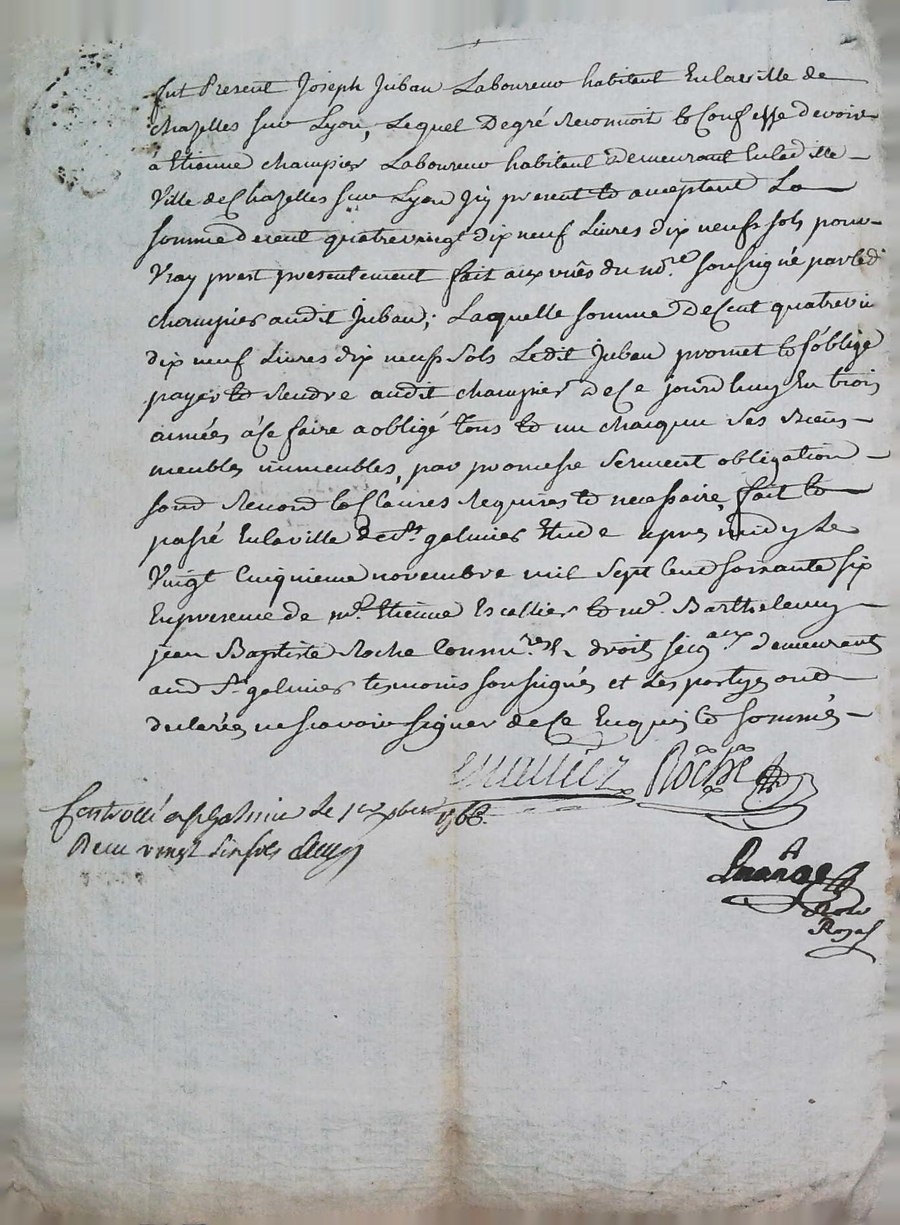 fut Present Joseph Juban Laboureur habitant En laville de
Chazelles sur Lyon, Lequel Degré reconnoit & Confesse devoir
à Etienne champier Laboureur habitant & demeurant Enladville
Ville de Chazelles sur Lyon Jcy present & acceptant La
somme de cent quatre vingt dix neuf Livres dix neufs sols pour
Vray prest presentement fait aux vuës du no.re soussigné par led
champier audit Juban; Laquelle somme de Cent quatrevin
dix neuf Livres dix neufs sols Ledit Juban promet & s'oblige
payer & Rendre audit champier de Ce jourdhuy En trois
années à Ce faire a obligé tous & un chacqun ses Biens
meubles immeubles, par promesse serment obligation
Renond & Clauses Requises & necessaire, fait &
passé En laville de St. galmier Etude apres midy Le
Vingt Cinquieme novembre mil sept Cent soixante six
En presence de mr. Etienne Escallier & mr. Barthelemy
jean Baptiste Roche droits seig.aux demeurants
aud St. galmier tesmoins soussignés et Les partyes ont
declarés ne scavoir signer de Ce Enquis & sommés
Roche
Controllé a St Galmier le 1er xbre 1766
Reçu vingt six sols
Royal